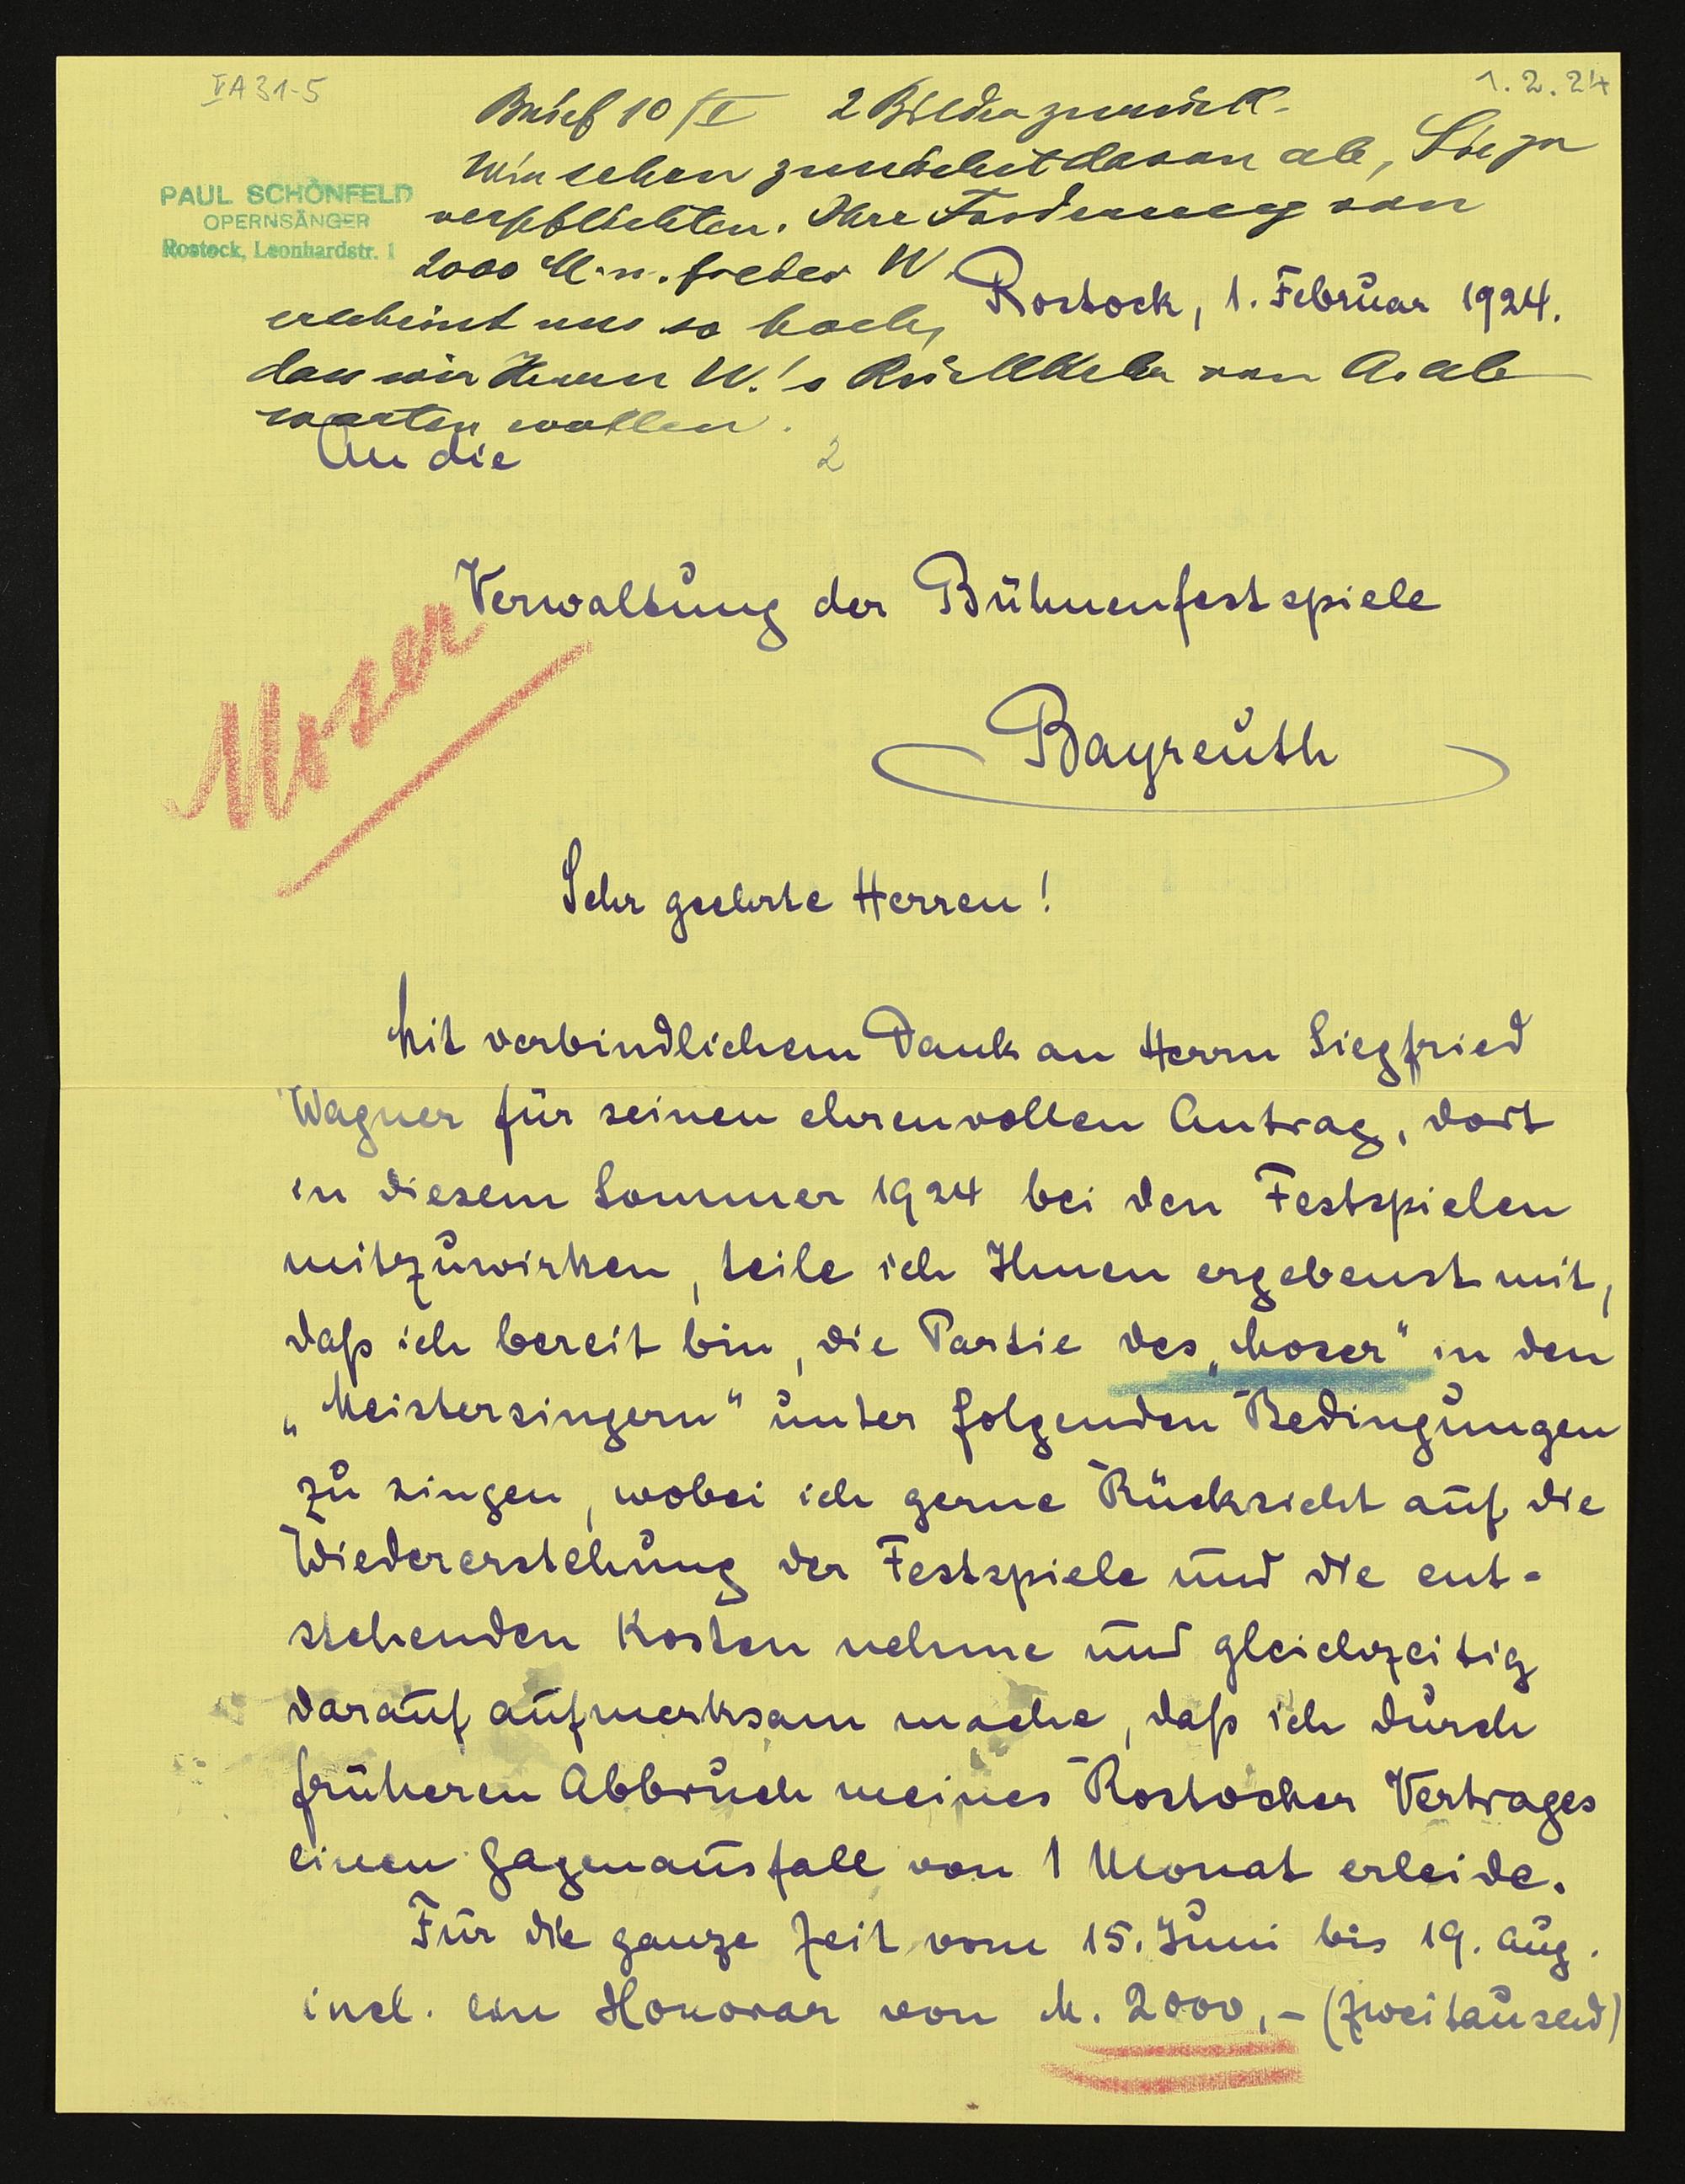 VA31-5
1.2.24
Brief 10/II 2 Bilder zurück.
Wir sehen zunächst davon ab, Sie zu
verpflichten. Ihre Forderung von
2000 M.
W.
erscheint uns so hoch,
dass wir Herrn W.'s Rückkehr von A. ab
warten wollen.
PAUL SCHÖNFELD
OPERNSÄNGER
Rostock, Leonhardstr. 1
Rostock, 1. Februar 1924.
An die
2
Verwaltung der Bühnenfestspiele
Moser
Bayreuth
Sehr geehrte Herren!
Mit verbindlichem Dank an Herrn Siegfried
Wagner für seinen ehrenvollen Antrag, dort
in diesem Sommer 1924 bei den Festspielen
mitzuwirken, teile ich Ihnen ergebenst mit,
daß ich bereit bin, die Partie des „Moser“ in den
„Meistersingern“ unter folgenden Bedingungen
zu singen, wobei ich gerne Rücksicht auf die
Wiedererstehung der Festspiele und die ent-
stehenden Kosten nehme und gleichzeitig
darauf aufmerksam mache, daß ich durch
früheren Abbruch meines Rostocker Vertrages
einen Gagenausfall von 1 Monat erleide.
Für die ganze Zeit vom 15. Juni bis 19. Aug.
incl. ein Honorar von M. 2000,- (zweitausend)